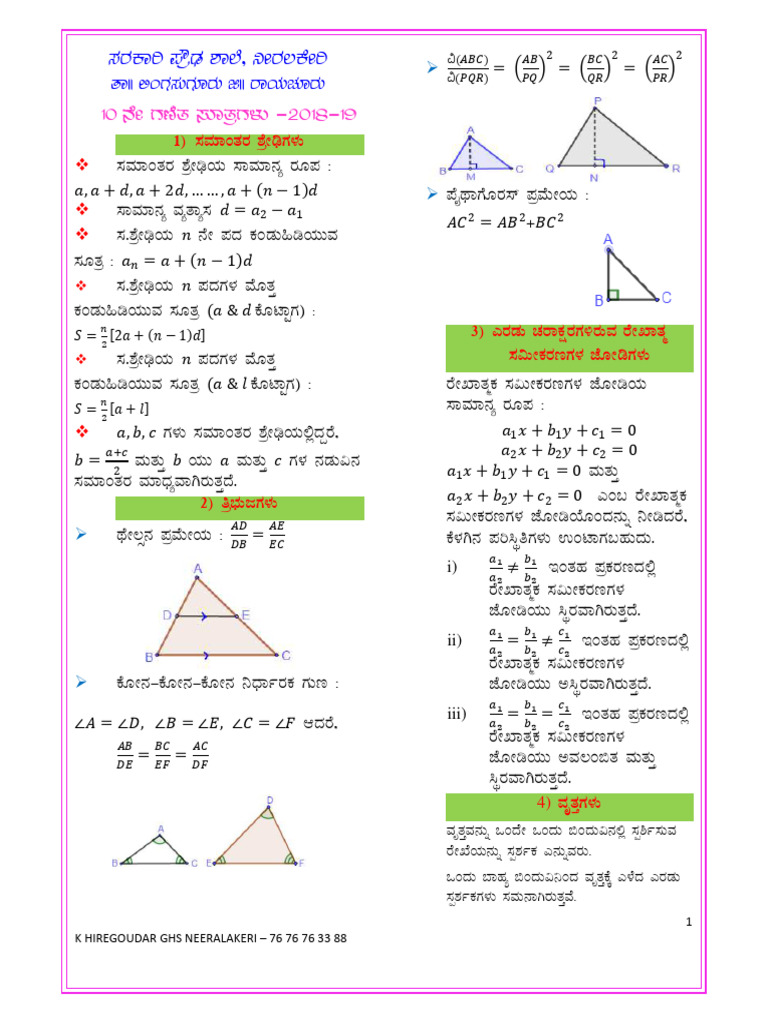 ಸರಕಾರಿ ಪ್ರೌಢ ಶಾಲೆ, ನೀರಲಕೇರಿ
ತಾ॥ ಲಿಂಗಸುಗೂರು ಜಿ॥ ರಾಯಚೂರು
10 ನೇ ಗಣಿತ ಸೂತ್ರಗಳು -2018-19
1) ಸಮಾಂತರ ಶ್ರೇಢಿಗಳು
❖ ಸಮಾಂತರ ಶ್ರೇಢಿಯ ಸಾಮಾನ್ಯ ರೂಪ :
a, a + d, a + 2d, … … , a + (n − 1)d
❖ ಸಾಮಾನ್ಯ ವ್ಯತ್ಯಾಸ d = a₂ − a₁
❖ ಸ.ಶ್ರೇಢಿಯ n ನೇ ಪದ ಕಂಡುಹಿಡಿಯುವ
ಸೂತ್ರ : aₙ = a + (n − 1)d
❖ ಸ.ಶ್ರೇಢಿಯ n ಪದಗಳ ಮೊತ್ತ
ಕಂಡುಹಿಡಿಯುವ ಸೂತ್ರ (a & d ಕೊಟ್ಟಾಗ) :
S = n/2 [2a + (n − 1)d]
❖ ಸ.ಶ್ರೇಢಿಯ n ಪದಗಳ ಮೊತ್ತ
ಕಂಡುಹಿಡಿಯುವ ಸೂತ್ರ (a & l ಕೊಟ್ಟಾಗ) :
S = n/2 [a + l]
❖ a, b, c ಗಳು ಸಮಾಂತರ ಶ್ರೇಢಿಯಲ್ಲಿದ್ದರೆ,
b = a+c/2 ಮತ್ತು b ಯು a ಮತ್ತು c ಗಳ ನಡುವಿನ
ಸಮಾಂತರ ಮಾಧ್ಯವಾಗಿರುತ್ತದೆ.
2) ತ್ರಿಭುಜಗಳು
➢ ಥೇಲ್ಸನ ಪ್ರಮೇಯ : AD/DB = AE/EC
A
D E
B C
➢ ಕೋನ–ಕೋನ–ಕೋನ ನಿರ್ಧಾರಕ ಗುಣ :
∠A = ∠D, ∠B = ∠E, ∠C = ∠F ಆದರೆ,
AB/DE = BC/EF = AC/DF
D
A
B C E F
➢ ವಿ(ABC)/ವಿ(PQR) = (AB/PQ)² = (BC/QR)² = (AC/PR)²
P
A
B M C Q N R
➢ ಪೈಥಾಗೊರಸ್ ಪ್ರಮೇಯ :
AC² = AB²+BC²
A
B C
3) ಎರಡು ಚರಾಕ್ಷರಗಳಿರುವ ರೇಖಾತ್ಮ
ಸಮೀಕರಣಗಳ ಜೋಡಿಗಳು
ರೇಖಾತ್ಮಕ ಸಮೀಕರಣಗಳ ಜೋಡಿಯ
ಸಾಮಾನ್ಯ ರೂಪ :
a₁x + b₁y + c₁ = 0
a₂x + b₂y + c₂ = 0
a₁x + b₁y + c₁ = 0 ಮತ್ತು
a₂x + b₂y + c₂ = 0 ಎಂಬ ರೇಖಾತ್ಮಕ
ಸಮೀಕರಣಗಳ ಜೋಡಿಯೊಂದನ್ನು ನೀಡಿದರೆ,
ಕೆಳಗಿನ ಪರಿಸ್ಥಿತಿಗಳು ಉಂಟಾಗಬಹುದು.
i) a₁/a₂ ≠ b₁/b₂ ಇಂತಹ ಪ್ರಕರಣದಲ್ಲಿ
ರೇಖಾತ್ಮಕ ಸಮೀಕರಣಗಳ
ಜೋಡಿಯು ಸ್ಥಿರವಾಗಿರುತ್ತದೆ.
ii) a₁/a₂ = b₁/b₂ ≠ c₁/c₂ ಇಂತಹ ಪ್ರಕರಣದಲ್ಲಿ
ರೇಖಾತ್ಮಕ ಸಮೀಕರಣಗಳ
ಜೋಡಿಯು ಅಸ್ಥಿರವಾಗಿರುತ್ತದೆ.
iii) a₁/a₂ = b₁/b₂ = c₁/c₂ ಇಂತಹ ಪ್ರಕರಣದಲ್ಲಿ
ರೇಖಾತ್ಮಕ ಸಮೀಕರಣಗಳ
ಜೋಡಿಯು ಅವಲಂಬಿತ ಮತ್ತು
ಸ್ಥಿರವಾಗಿರುತ್ತದೆ.
4) ವೃತ್ತಗಳು
ವೃತ್ತವನ್ನು ಒಂದೇ ಒಂದು ಬಿಂದುವಿನಲ್ಲಿ ಸ್ಪರ್ಶಿಸುವ
ರೇಖೆಯನ್ನು ಸ್ಪರ್ಶಕ ಎನ್ನುವರು.
ಒಂದು ಬಾಹ್ಯ ಬಿಂದುವಿನಿಂದ ವೃತ್ತಕ್ಕೆ ಎಳೆದ ಎರಡು
ಸ್ಪರ್ಶಕಗಳು ಸಮನಾಗಿರುತ್ತವೆ.
1
K HIREGOUDAR GHS NEERALAKERI – 76 76 76 33 88